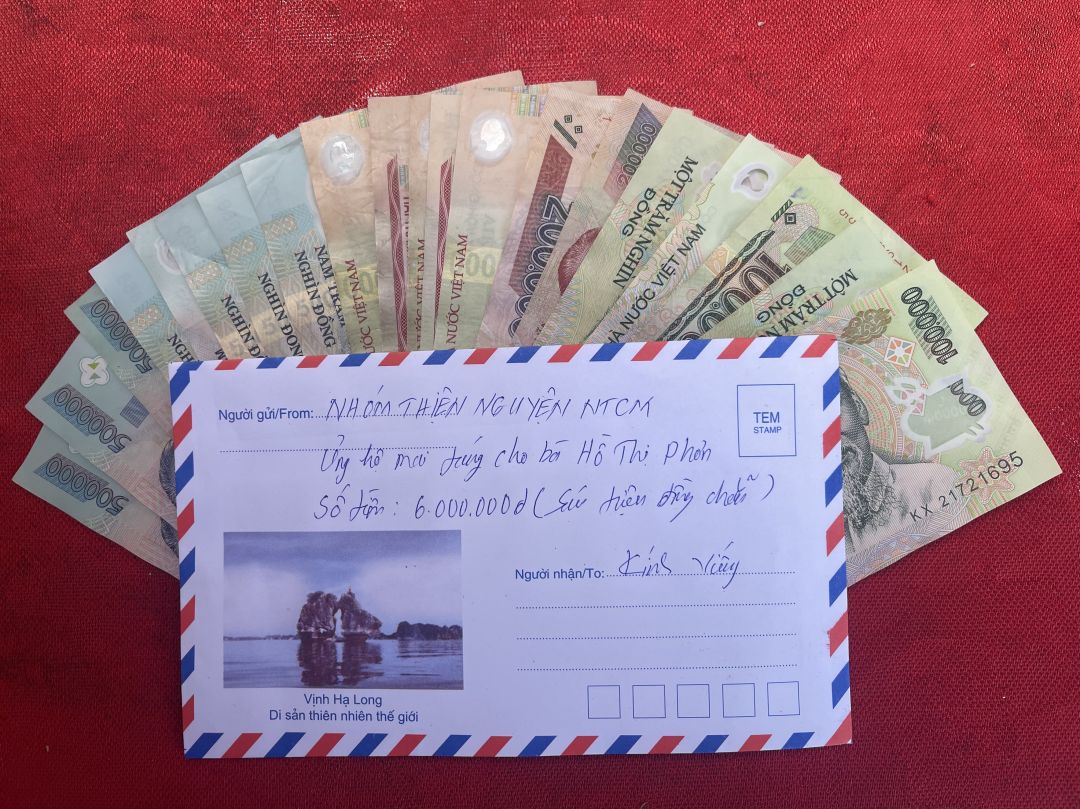 500000
500000
500000
NGHÌN
NGHÌN Đ
NGHÌN ĐON
NĂM TRĂM
NGHÌN ĐỒNG
VIỆT NAM
NƯỚC VIỆT NAM
200.000
200000
MỘT TRĂM NGHÌN
ĐỒNG
HÀ NƯỚC VIỆT NAM
MỘT TRĂM NGHÌN
ĐỒNG
100000
KX 21721695
Người gửi/From: NHÓM THIỆN NGUYỆN NTCM
Ủng hộ mai táng cho bà Hồ Thị Phơn
Số tiền: 6.000.000đ (Sáu triệu đồng chẵn)
TEM
STAMP
Người nhận/To: Kính Viếng
Vịnh Hạ Long
Di sản thiên nhiên thế giới